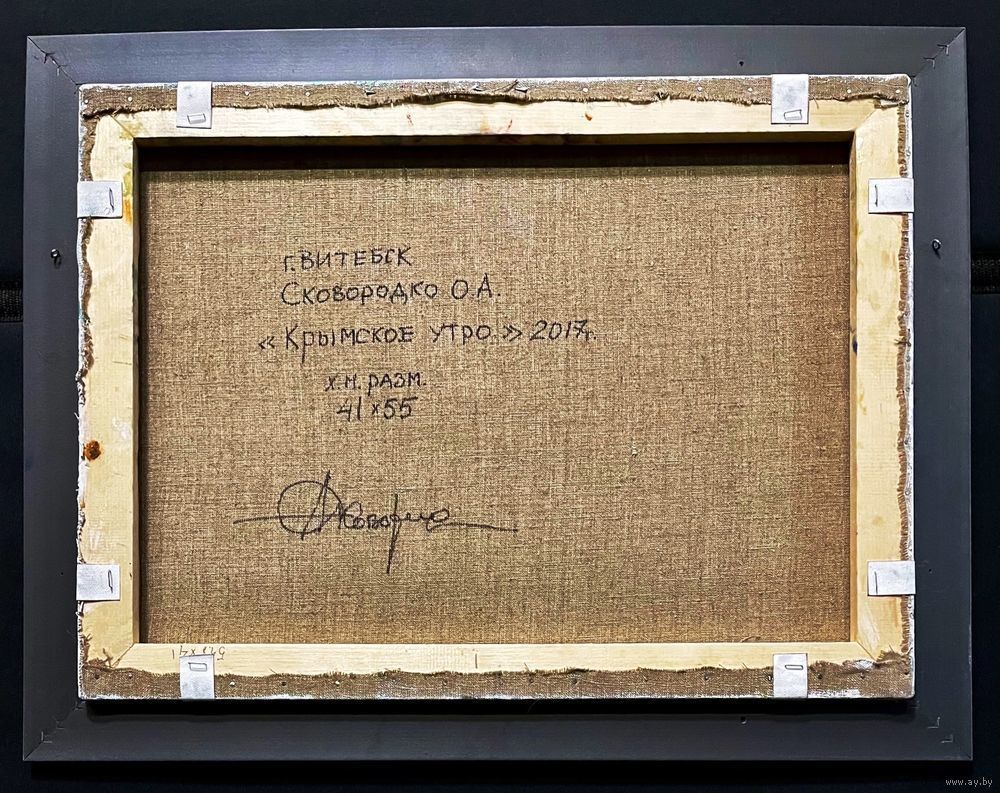 г. ВИТЕБСК
Сковородко О.А.
«Крымское утро.» 2017г.
х.м. разм.
41 х 55
www.ay.by